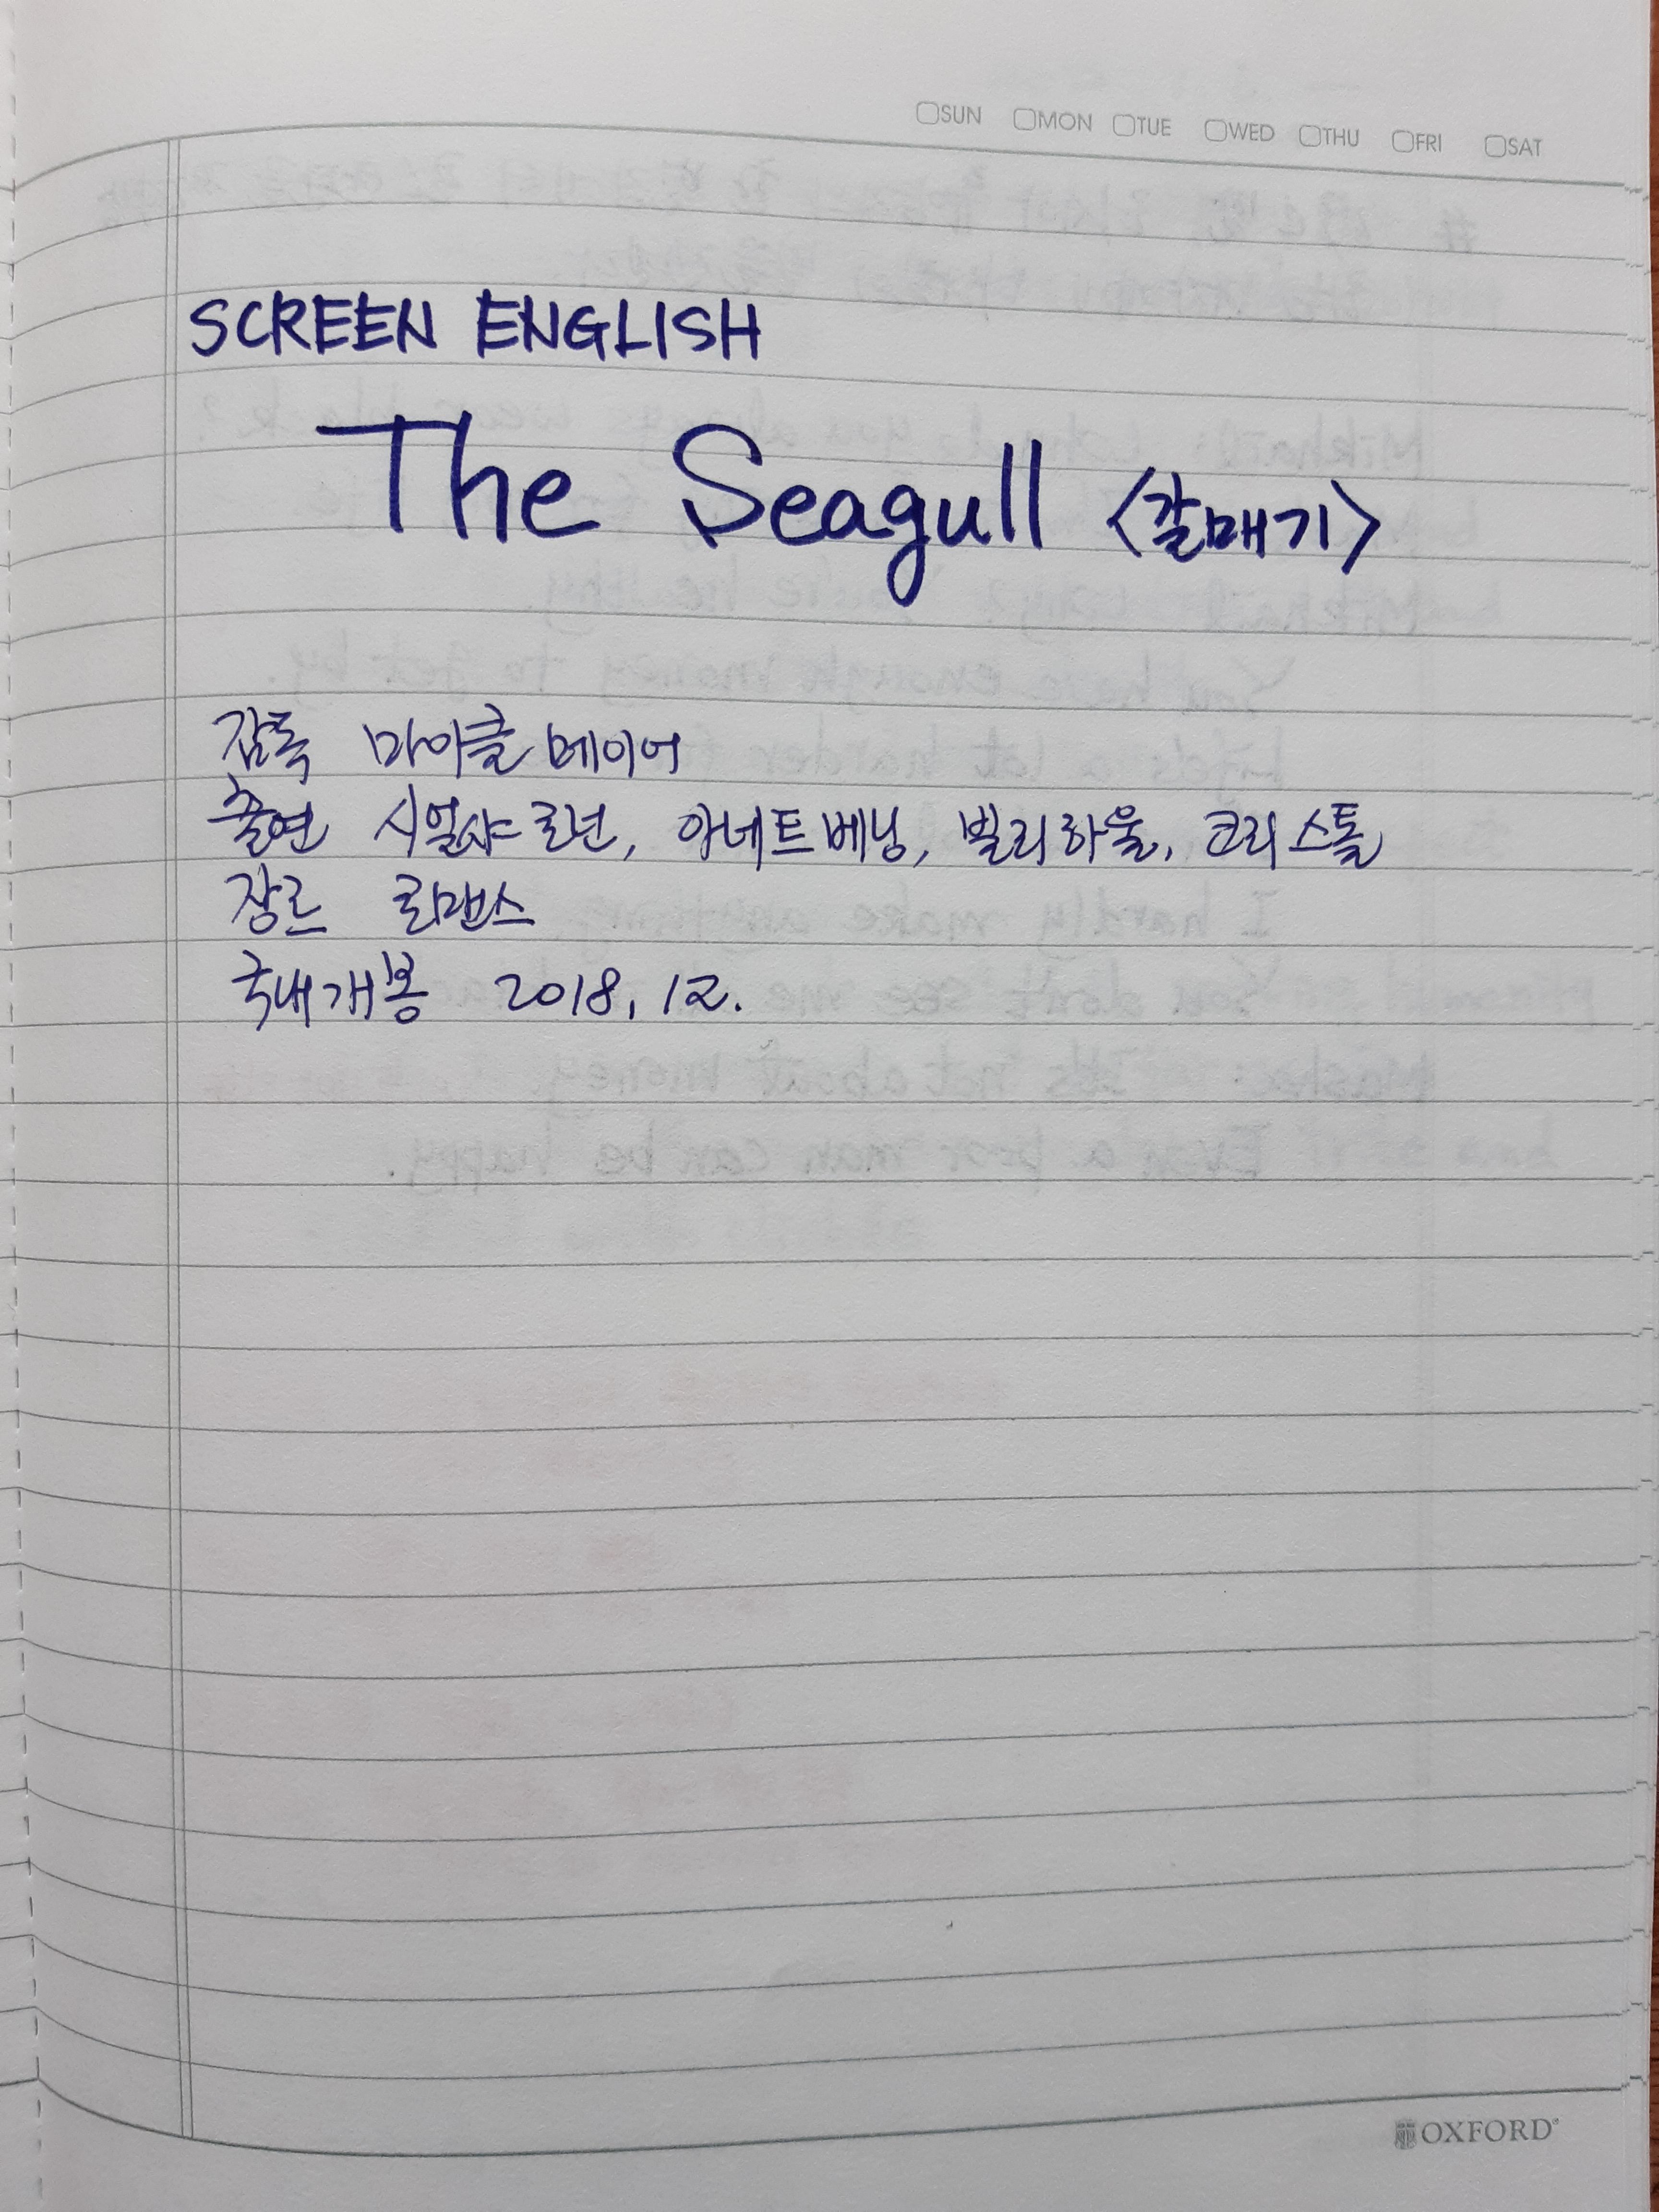 SUN MON TUE WED THU FRI SAT
SCREEN ENGLISH
The Seagull <갈매기>
감독 마이클 메이어
출연 시얼샤 로넌, 아네트 베닝, 빌리 하울, 코리 스톨
장르 로맨스
국내개봉 2018. 12.
OXFORD